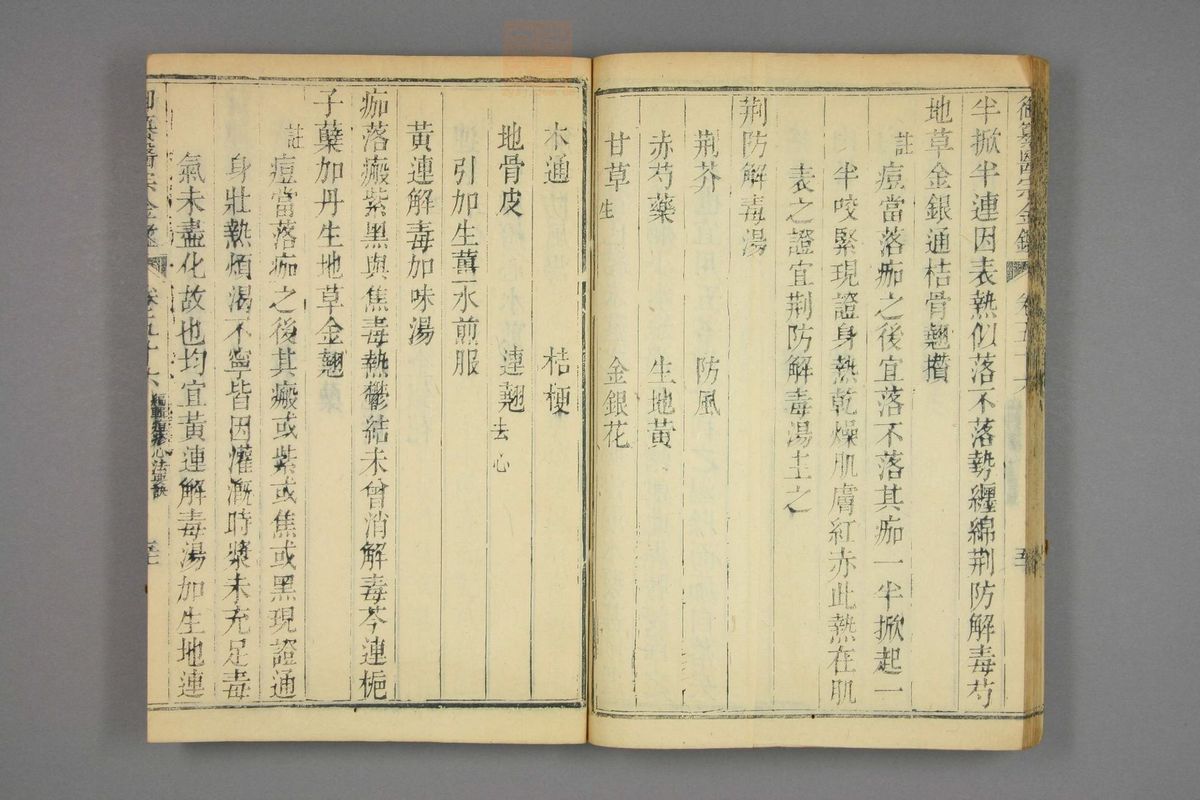 御纂醫宗金鑑 卷五十六
半掀半連因表熱似落不落勢纏綿荆防解毒芍
地草金銀通桔骨翹攢
註痘當落痂之後宜落不落其痂一半掀起一
半咬緊現證身熱乾燥肌膚紅赤此熱在肌
表之證宜荆防解毒湯主之
荆防解毒湯
荆芥 防風
赤芍藥 生地黃
甘草生 金銀花
木通 桔梗
地骨皮 連翹去心
引加生薑水煎服
黃連解毒加味湯
痂落瘢紫黑與焦毒熱鬱結未曾消解毒芩連梔
子蘗加丹生地草金翹
註痘當落痂之後其瘢或紫或焦或黑現證通
身壯熱煩渴不寧皆因灌漑時漿未充足毒
氣未盡化故也均宜黃連解毒湯加生地連
卷五十六 心法要訣